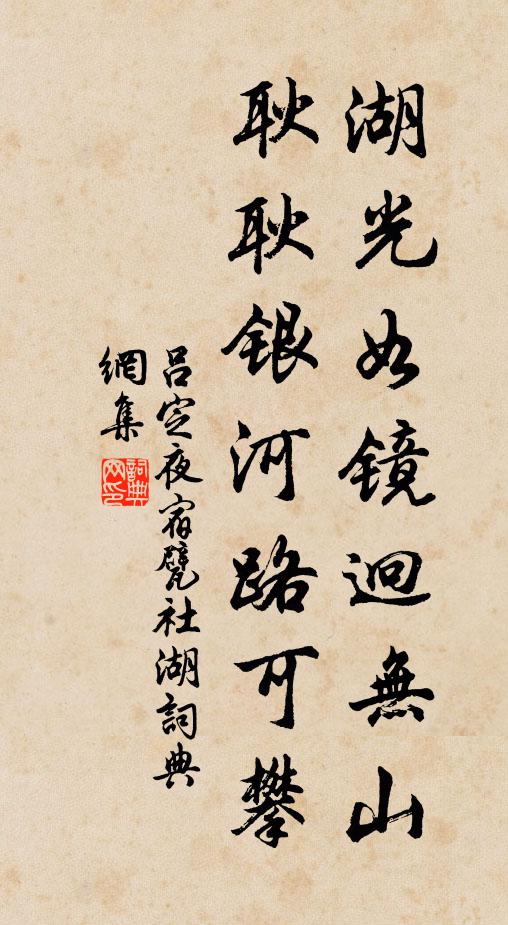 湖光如镜迥無山
耿耿银河路可攀
吕定夜宿甓社湖詞典
網集
詞典網印